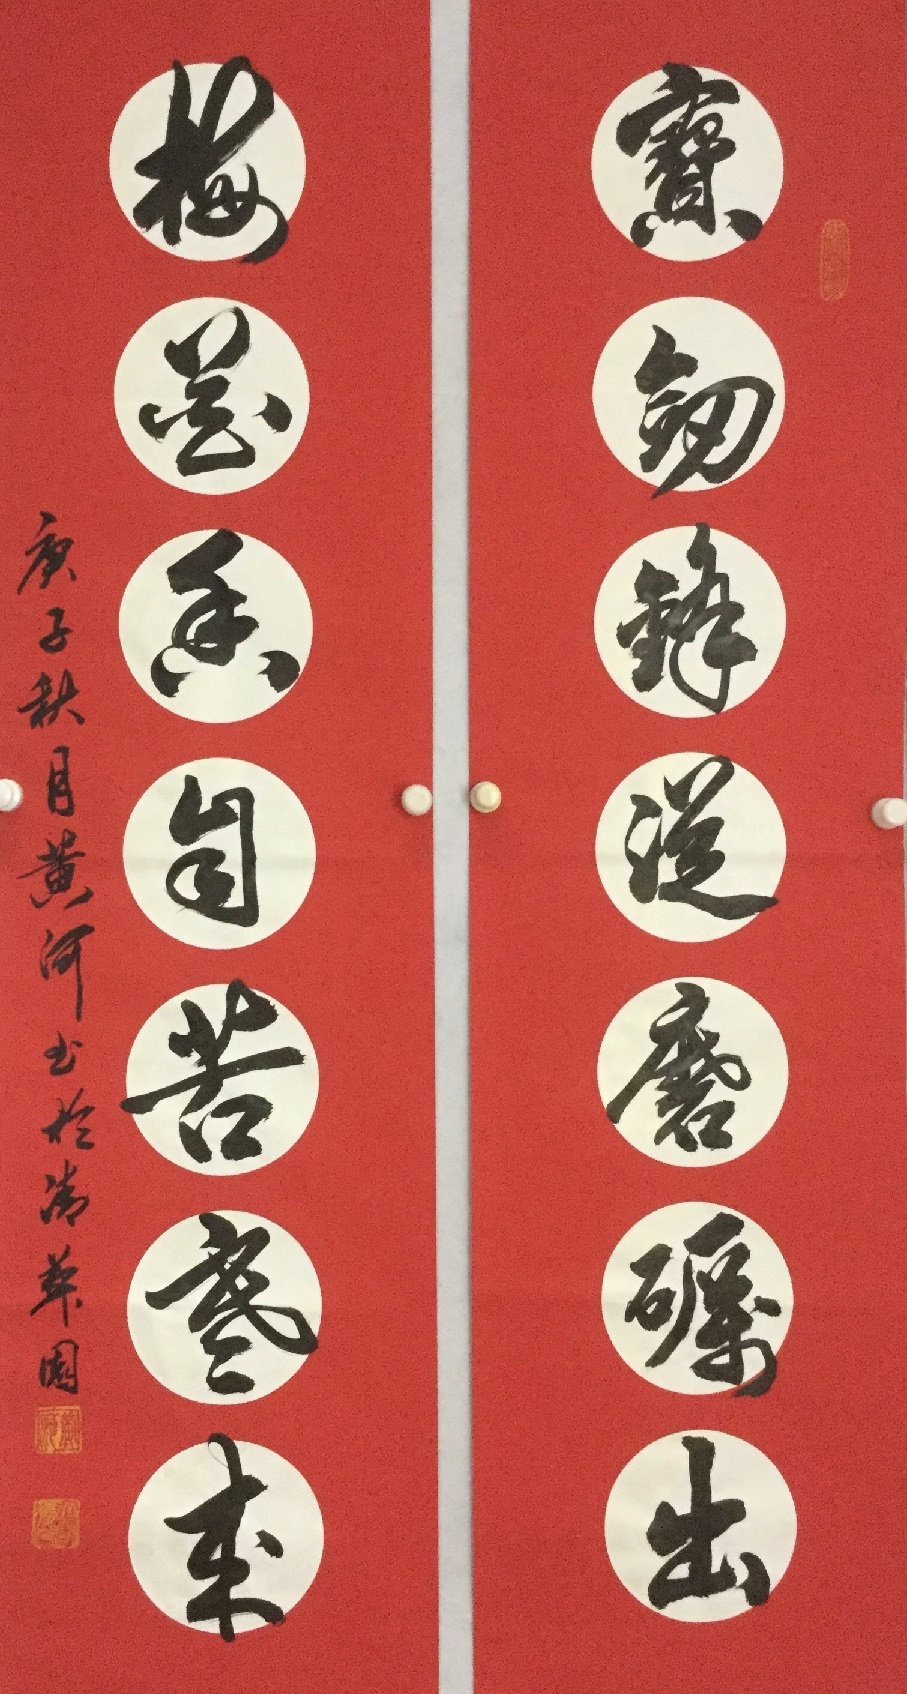 寶劒鋒從磨礪出
梅花香自苦寒來
庚子秋月黃河书於清華園